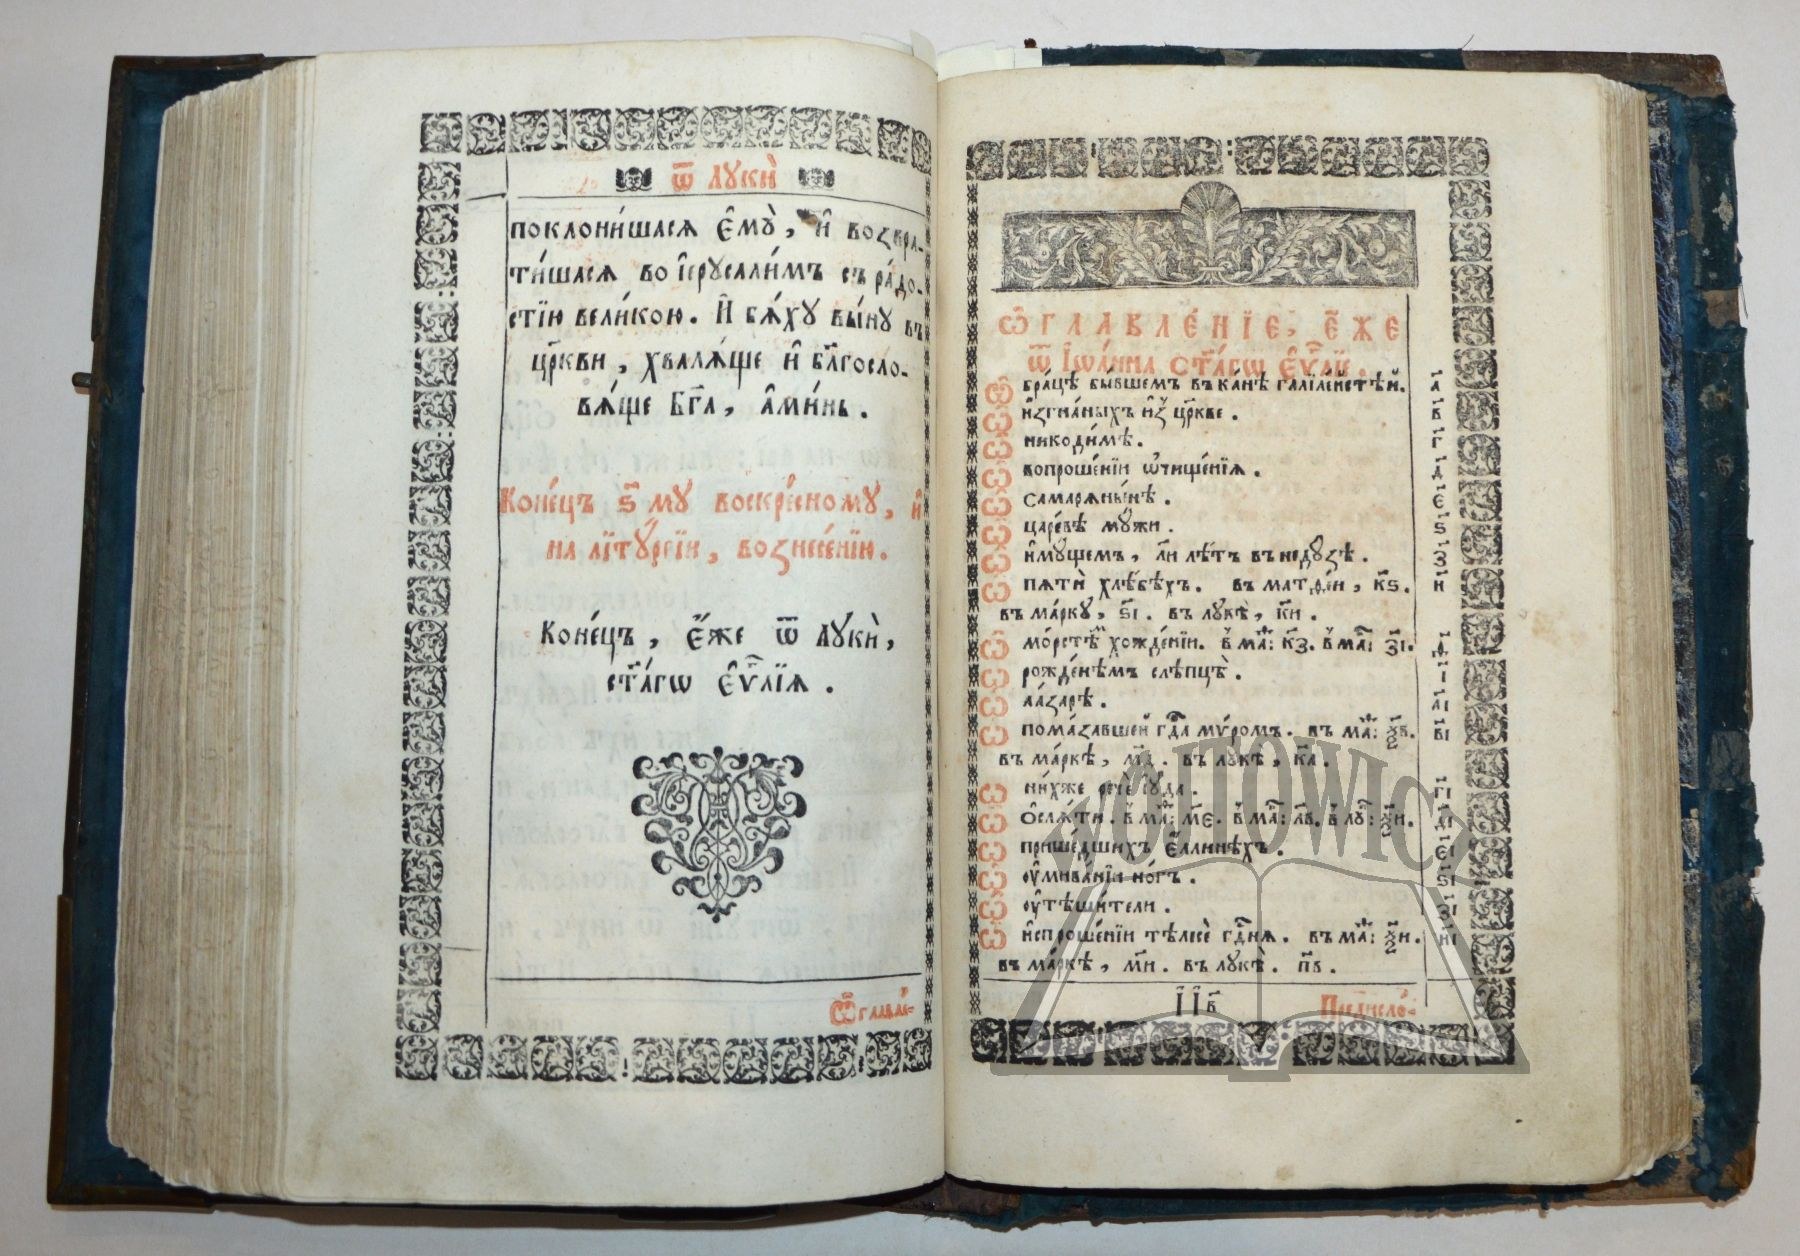 ѿ лꙋки̇̀
поклони́шасѧ є҆мꙋ̀, и҆ возвра-
ти́шасѧ во і҆ерꙋсали́мъ съ ра́до-
стїю вели́кою. И҆ бѧ́хꙋ вы́нꙋ въ
цр҃кви, хвалѧ́ще и҆ бл҃госло-
вѧ́ще Бг҃а, а҆ми́нь.
Коне́цъ ѕ҃ мꙋ воскре́сномꙋ, и҆
на лїтꙋ́ргїи, вознесе́нїю.
Коне́цъ, є҆́же ѿ лꙋки̇̀,
ст҃а́гѡ є҆ѵⷢ҇лїѧ.
Ѡ҆главле́-
Ѡ҆главле́нїе, є҆́же
ѿ І҆ѡа́нна ст҃а́гѡ є҆ѵⷢ҇лїѧ.
Ѡ бра́цѣ бы́вшемъ въ ка́нѣ галїле́йстѣй. а҃
Ѡ и҆згна́ныхъ и҆з̾ цр҃кве. в҃
Ѡ никоди́мѣ. г҃
Ѡ вопроше́нїи ѡ҆чище́нїѧ. д҃
Ѡ самарѧны́нѣ. є҃
Ѡ царе́вѣ мꙋ́жи. ѕ҃
Ѡ и҆мꙋ́щемъ, л҃и лѣ́тъ въ недꙋ́зѣ. з҃
Ѡ пѧти̇̀ хлѣ́бѣхъ. въ матѳе́и, к҃ѕ. и҃
въ ма́ркꙋ, ѕ҃і. въ лꙋкѣ̀, к҃и.
Ѡ мо́рстѣⷨ хожде́нїи. в̾ маⷴ: к҃з. в̾ маⷬ: з҃і. ѳ҃
Ѡ рожде́нѣмъ слѣпцѣ̀. і҃
Ѡ ла́зарѣ. а҃і
Ѡ пома́завшей гдⷭ҇а мѵ́ромъ. въ маⷴ: ѯ҃в. в҃і
въ ма́ркѣ, м҃д. въ лꙋкѣ̀, к҃а.
Ѡ ни́хже речѐ і҆ꙋ́да. г҃і
Ѡ ѻ҆слѧ́ти. в̾ маⷴ: м҃є. в̾ маⷬ: л҃в. в̾ лꙋ: ѯ҃и. д҃і
Ѡ прише́дшихъ є҆́ллинѣхъ. є҃і
Ѡ ѹ҆мыва́нїи но́гъ. ѕ҃і
Ѡ ѹ҆тѣ́шители. з҃і
Ѡ и҆спроше́нїи тѣлесѐ гдⷭ҇нѧ. въ маⷴ: ѯ҃и. и҃і
въ ма́ркѣ, м҃и. въ лꙋкѣ̀. п҃в.
П҃П҃в
Предисло́-
WÓJTOWICZ